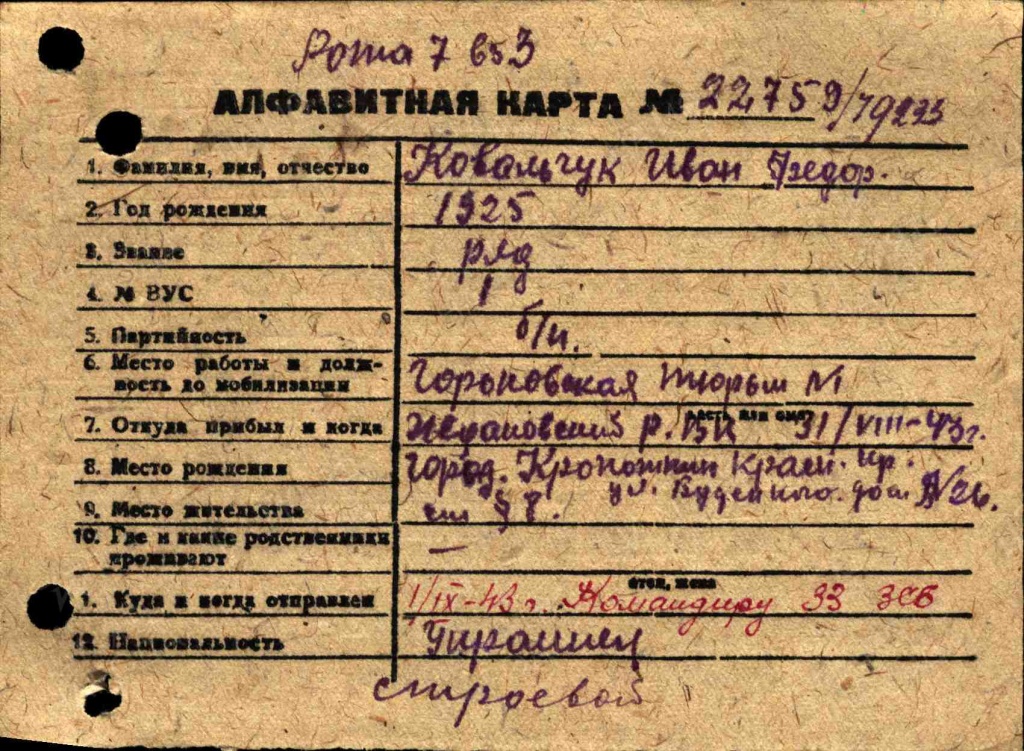 Рота 7 взЗ
АЛФАВИТНАЯ КАРТА № 22759/79223
1. Фамилия, имя, отчество Ковальчук Иван Федор.
2. Год рождения 1925
3. Звание ряд
4. № ВУС 1
5. Партийность б/п.
6. Место работы и долж-
ность до мобилизации тюрьм №1
часть или
7. Откуда прибыл и когда Ждановский Р.ВК 31/VIII-43г.
8. Место рождения город. Кропоткин Красн. кр.
ул. Буденного. дом №26.
9. Место жительства
10. Где и какие родственники
проживают —
отец, жена
1. Куда и когда отправлен 1/IX-43 г. Командиру 33 ЗСБ
12. Национальность
строевой